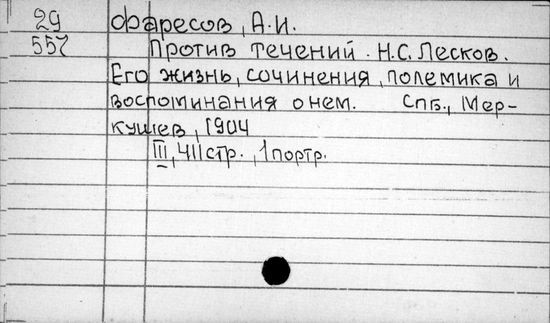 29 Фаресов, А.И.
557 Против течений. Н.С. Лесков.
Его жизнь, сочинения, полемика и
воспоминания о нем. Спб., Мер-
кушев, 1904
III, 411 стр., 1 портр.